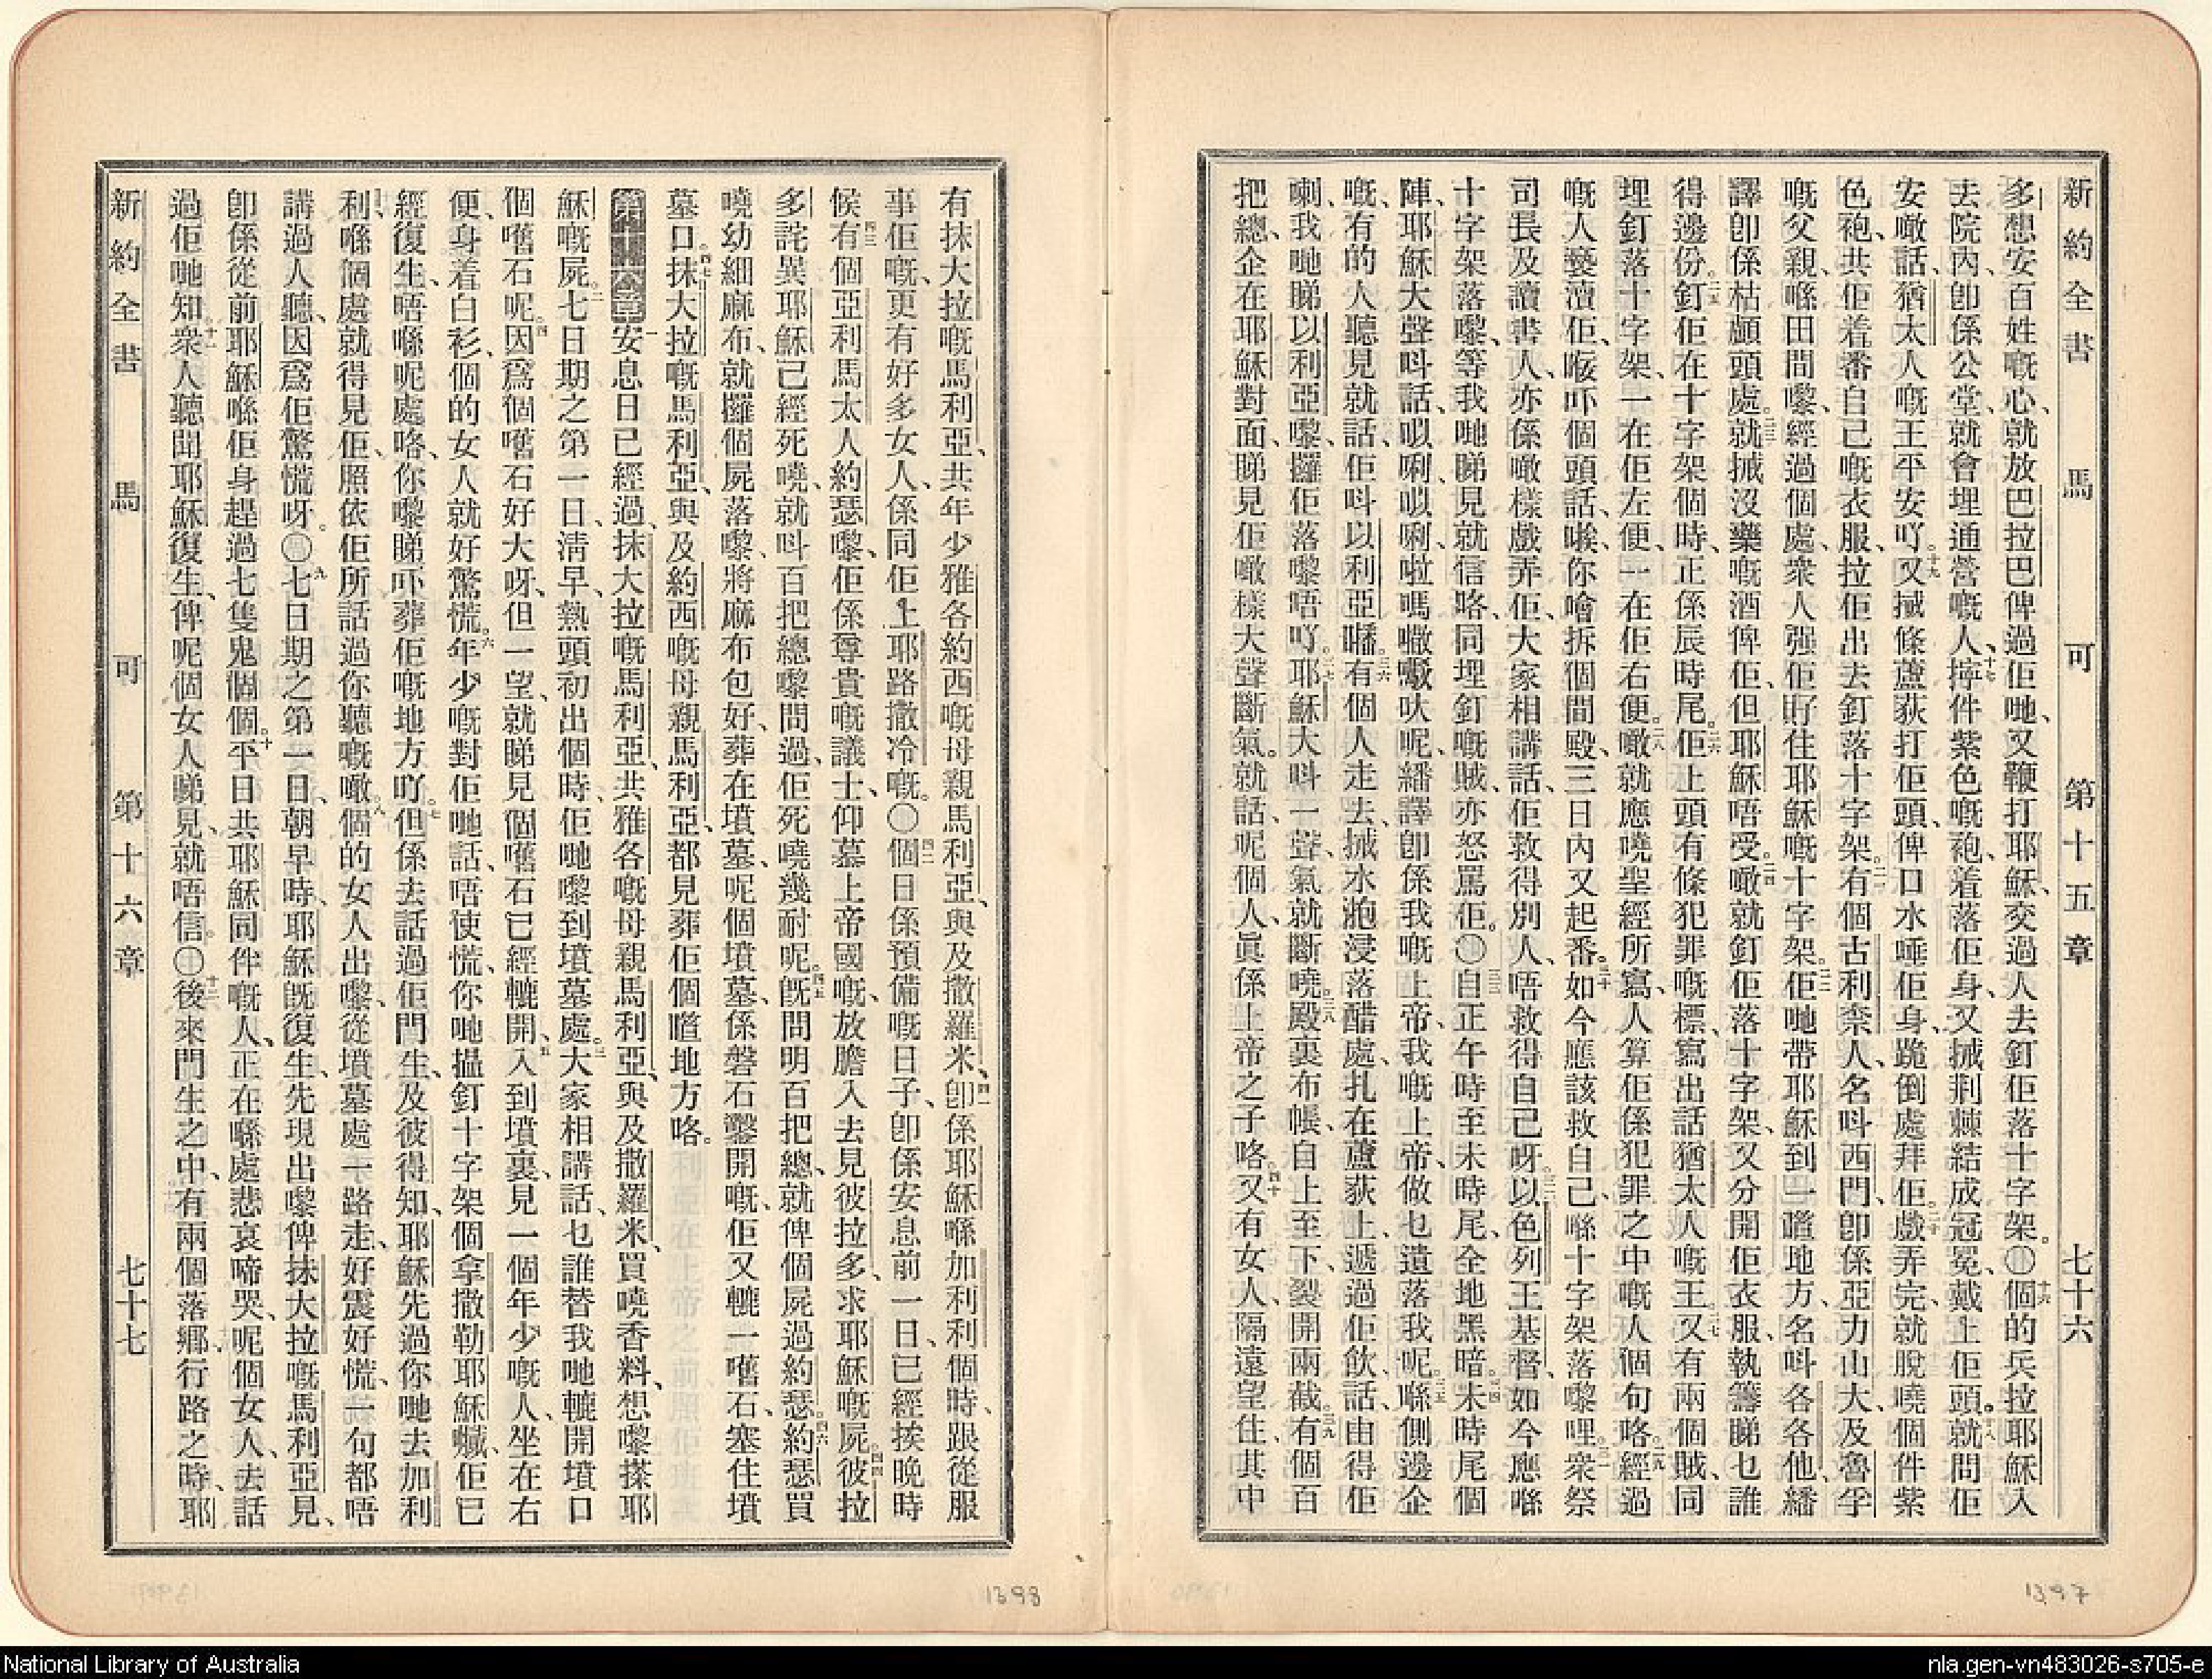 新約全書 馬可 第十五章 七十六
多想安百姓嘅心、就放巴拉巴俾過佢哋、又鞭打耶穌、交過人去釘佢落十字架。〇十六個的兵拉耶穌入
去院內、卽係公堂、就會埋通營嘅人、十七擰件紫色嘅袍、着落佢身、又搣荆棘結成冠冕、戴上佢頭。十八就問佢
安噉話、猶太人嘅王平安吖。十九又搣條蘆荻打佢頭、俾口水唾佢身、跪倒處拜佢。二十戲弄完、就脫嘵個件紫
色袍、共佢着番自己嘅衣服、拉佢出去釘落十字架。二一有個古利柰人、名呌西門、卽係亞力山大、及魯孚
嘅父親、喺田間嚟、經過個處、衆人强佢䝼住耶穌嘅十字架。二二佢哋帶耶穌到一噠地方、名呌各各他、繙
譯卽係枯顱頭處。二三就搣沒藥嘅酒俾佢、但耶穌唔受。二四噉就釘佢落十字架、又分開佢衣服、執籌睇乜誰
得邊份。二五釘佢在十字架個時、正係辰時尾。二六佢上頭有條犯罪嘅標、寫出話猶太人嘅王。二七又有兩個賊、同
埋釘落十字架、一在佢左便、一在佢右便。二八噉就應嘵聖經所寫、人算佢係犯罪之中嘅人個句咯。二九經過
嘅人褻瀆佢、𠱁吓個頭話、唉、你噲拆個間殿、三日內又起番。三十如今應該救自己、喺十字架落嚟哩。三一衆祭
司長及讀書人、亦係噉樣戲弄佢、大家相講話、佢救得別人、唔救得自己呀。三二以色列王基督、如今應喺
十字架落嚟、等我哋睇見就信咯、同埋釘嘅賊、亦怒罵佢。〇三三自正午時至未時尾、全地黑暗。三四未時尾個
陣、耶穌大聲呌話、𠯋唎𠯋唎、啦嗎𡃈嚈呔呢、繙譯卽係我嘅上帝、我嘅上帝、做乜遺落我呢。三五喺側邊企
嘅、有的人聽見就話、佢呌以利亞嚟。三六有個人走去、搣水泡浸落醋處、扎在蘆荻上、遞過佢飲、話、由得佢
喇、我哋睇以利亞嚟攞佢落嚟唔吖。三七耶穌大呌一聲、氣就斷嘵。三八殿裏布帳、自上至下、裂開兩截。三九有個百
把總、企在耶穌對面、睇見佢噉樣大聲斷氣。就話、呢個人、眞係上帝之子咯。四十又有女人、隔遠望住、其中
有抹大拉嘅馬利亞、共年少雅各約西嘅母親馬利亞、與及撒羅米、四一卽係耶穌喺加利利個時、跟從服
事佢嘅、更有好多女人、係同佢上耶路撒冷嘅。〇四二個日係預備嘅日子、卽係安息前一日、已經挨晚時
候、四三有個亞利馬太人約瑟嚟、佢係尊貴嘅議士、仰慕上帝國嘅、放膽入去見彼拉多、求耶穌嘅屍。四四彼拉
多詫異耶穌已經死嘵、就呌百把總嚟問過、佢死嘵幾耐呢。四五旣問明百把總、就俾個屍過約瑟。四六約瑟買
嘵幼細麻布、就攞個屍落嚟、將麻布包好、葬在墳墓、呢個墳墓、係磐石鑿開嘅、佢又轆一嚿石、塞住墳
墓口。四七抹大拉嘅馬利亞、與及約西嘅母親馬利亞、都見葬佢個噠地方咯。
第十六章 一安息日已經過、抹大拉嘅馬利亞、共雅各嘅母親馬利亞、與及撒羅米、買嘵香料、想嚟搽耶
穌嘅屍。二七日期之第一日、清早、熱頭初出個時、佢哋嚟到墳墓處。三大家相講話、乜誰替我哋轆開墳口
個嚿石呢。四因爲個嚿石好大呀、但一望、就睇見個嚿石已經轆開、五入到墳裏、見一個年少嘅人、坐在右
便、身着白衫、個的女人就好驚慌。六年少嘅對佢哋話、唔使慌、你哋搵釘十字架個拿撒勒耶穌嚹、佢已
經復生、唔喺呢處咯、你嚟睇吓葬佢嘅地方吖。七但係去話過佢門生、及彼得知、耶穌先過你哋去加利
利、喺個處就得見佢、照依佢所話過你聽嘅噉。八個的女人出嚟、從墳墓處一路走、好震好慌、一句都唔
講過人聽、因爲佢驚慌呀。〇九七日期之第一日、朝早時、耶穌旣復生、先現出嚟俾抹大拉嘅馬利亞見、
卽係從前耶穌喺佢身趕過七隻鬼個個。十平日共耶穌同伴嘅人、正在喺處悲哀啼哭、呢個女人、去話
過佢哋知。十一衆人聽聞耶穌復生、俾呢個女人睇見、就唔信。〇十二後來門生之中、有兩個落鄉行路之時、耶
新約全書 馬可 第十六章 七十七
1398
1397
National Library of Australia
nla.gen-vn483026-s705-e